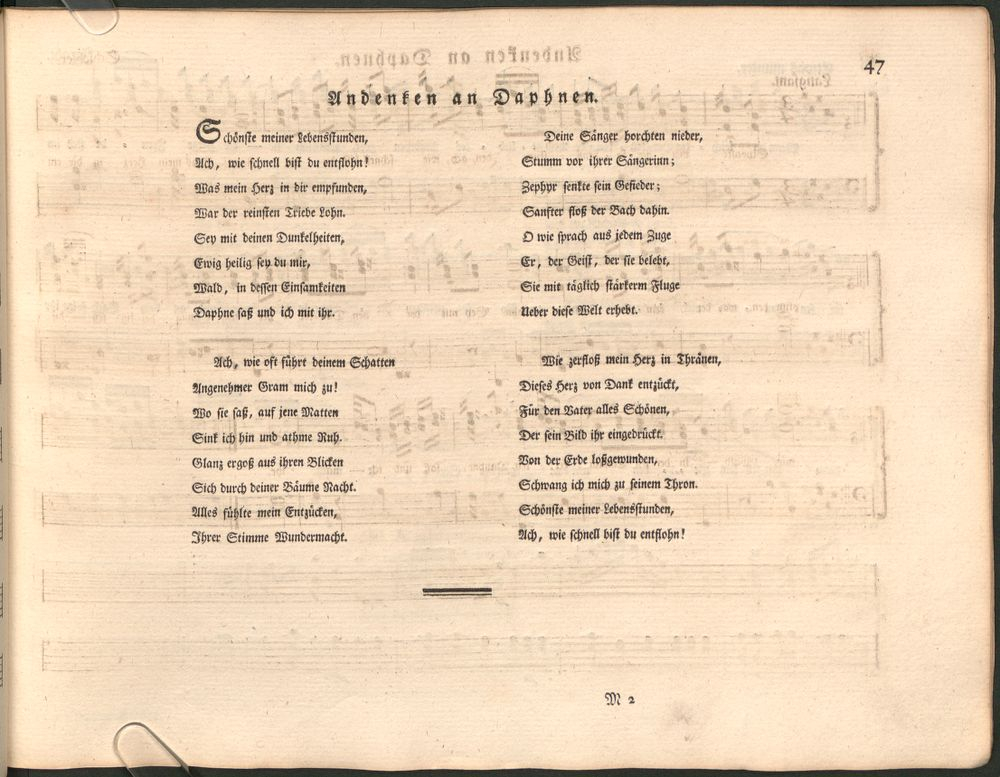 47
Andenken an Daphnen.
Schönste meiner Lebensstunden,
Ach, wie schnell bist du entflohn!
Was mein Herz in dir empfunden,
War der reinsten Triebe Lohn.
Sey mit deinen Dunkelheiten,
Ewig heilig sey du mir,
Wald, in dessen Einsamkeiten
Daphne saß und ich mit ihr.
Ach, wie oft führt deinem Schatten
Angenehmer Gram mich zu!
Wo sie saß, auf jene Matten
Sink ich hin und athme Ruh.
Glanz ergoß aus ihren Blicken
Sich durch deiner Bäume Nacht.
Alles fühlte mein Entzücken,
Ihrer Stimme Wundermacht.
Deine Sänger horchten nieder,
Stumm vor ihrer Sängerinn;
Zephyr senkte sein Gefieder;
Sanfter floß der Bach dahin.
O wie sprach aus jedem Zuge
Er, der Geist, der sie belebt,
Sie mit täglich stärkerm Fluge
Ueber diese Welt erhebt.
Wie zerfloß mein Herz in Thränen,
Dieses Herz von Dank entzückt,
Für den Vater alles Schönen,
Der sein Bild ihr eingedrückt.
Von der Erde loßgewunden,
Schwang ich mich zu seinem Thron.
Schönste meiner Lebensstunden,
Ach, wie schnell bist du entflohn!
M 2